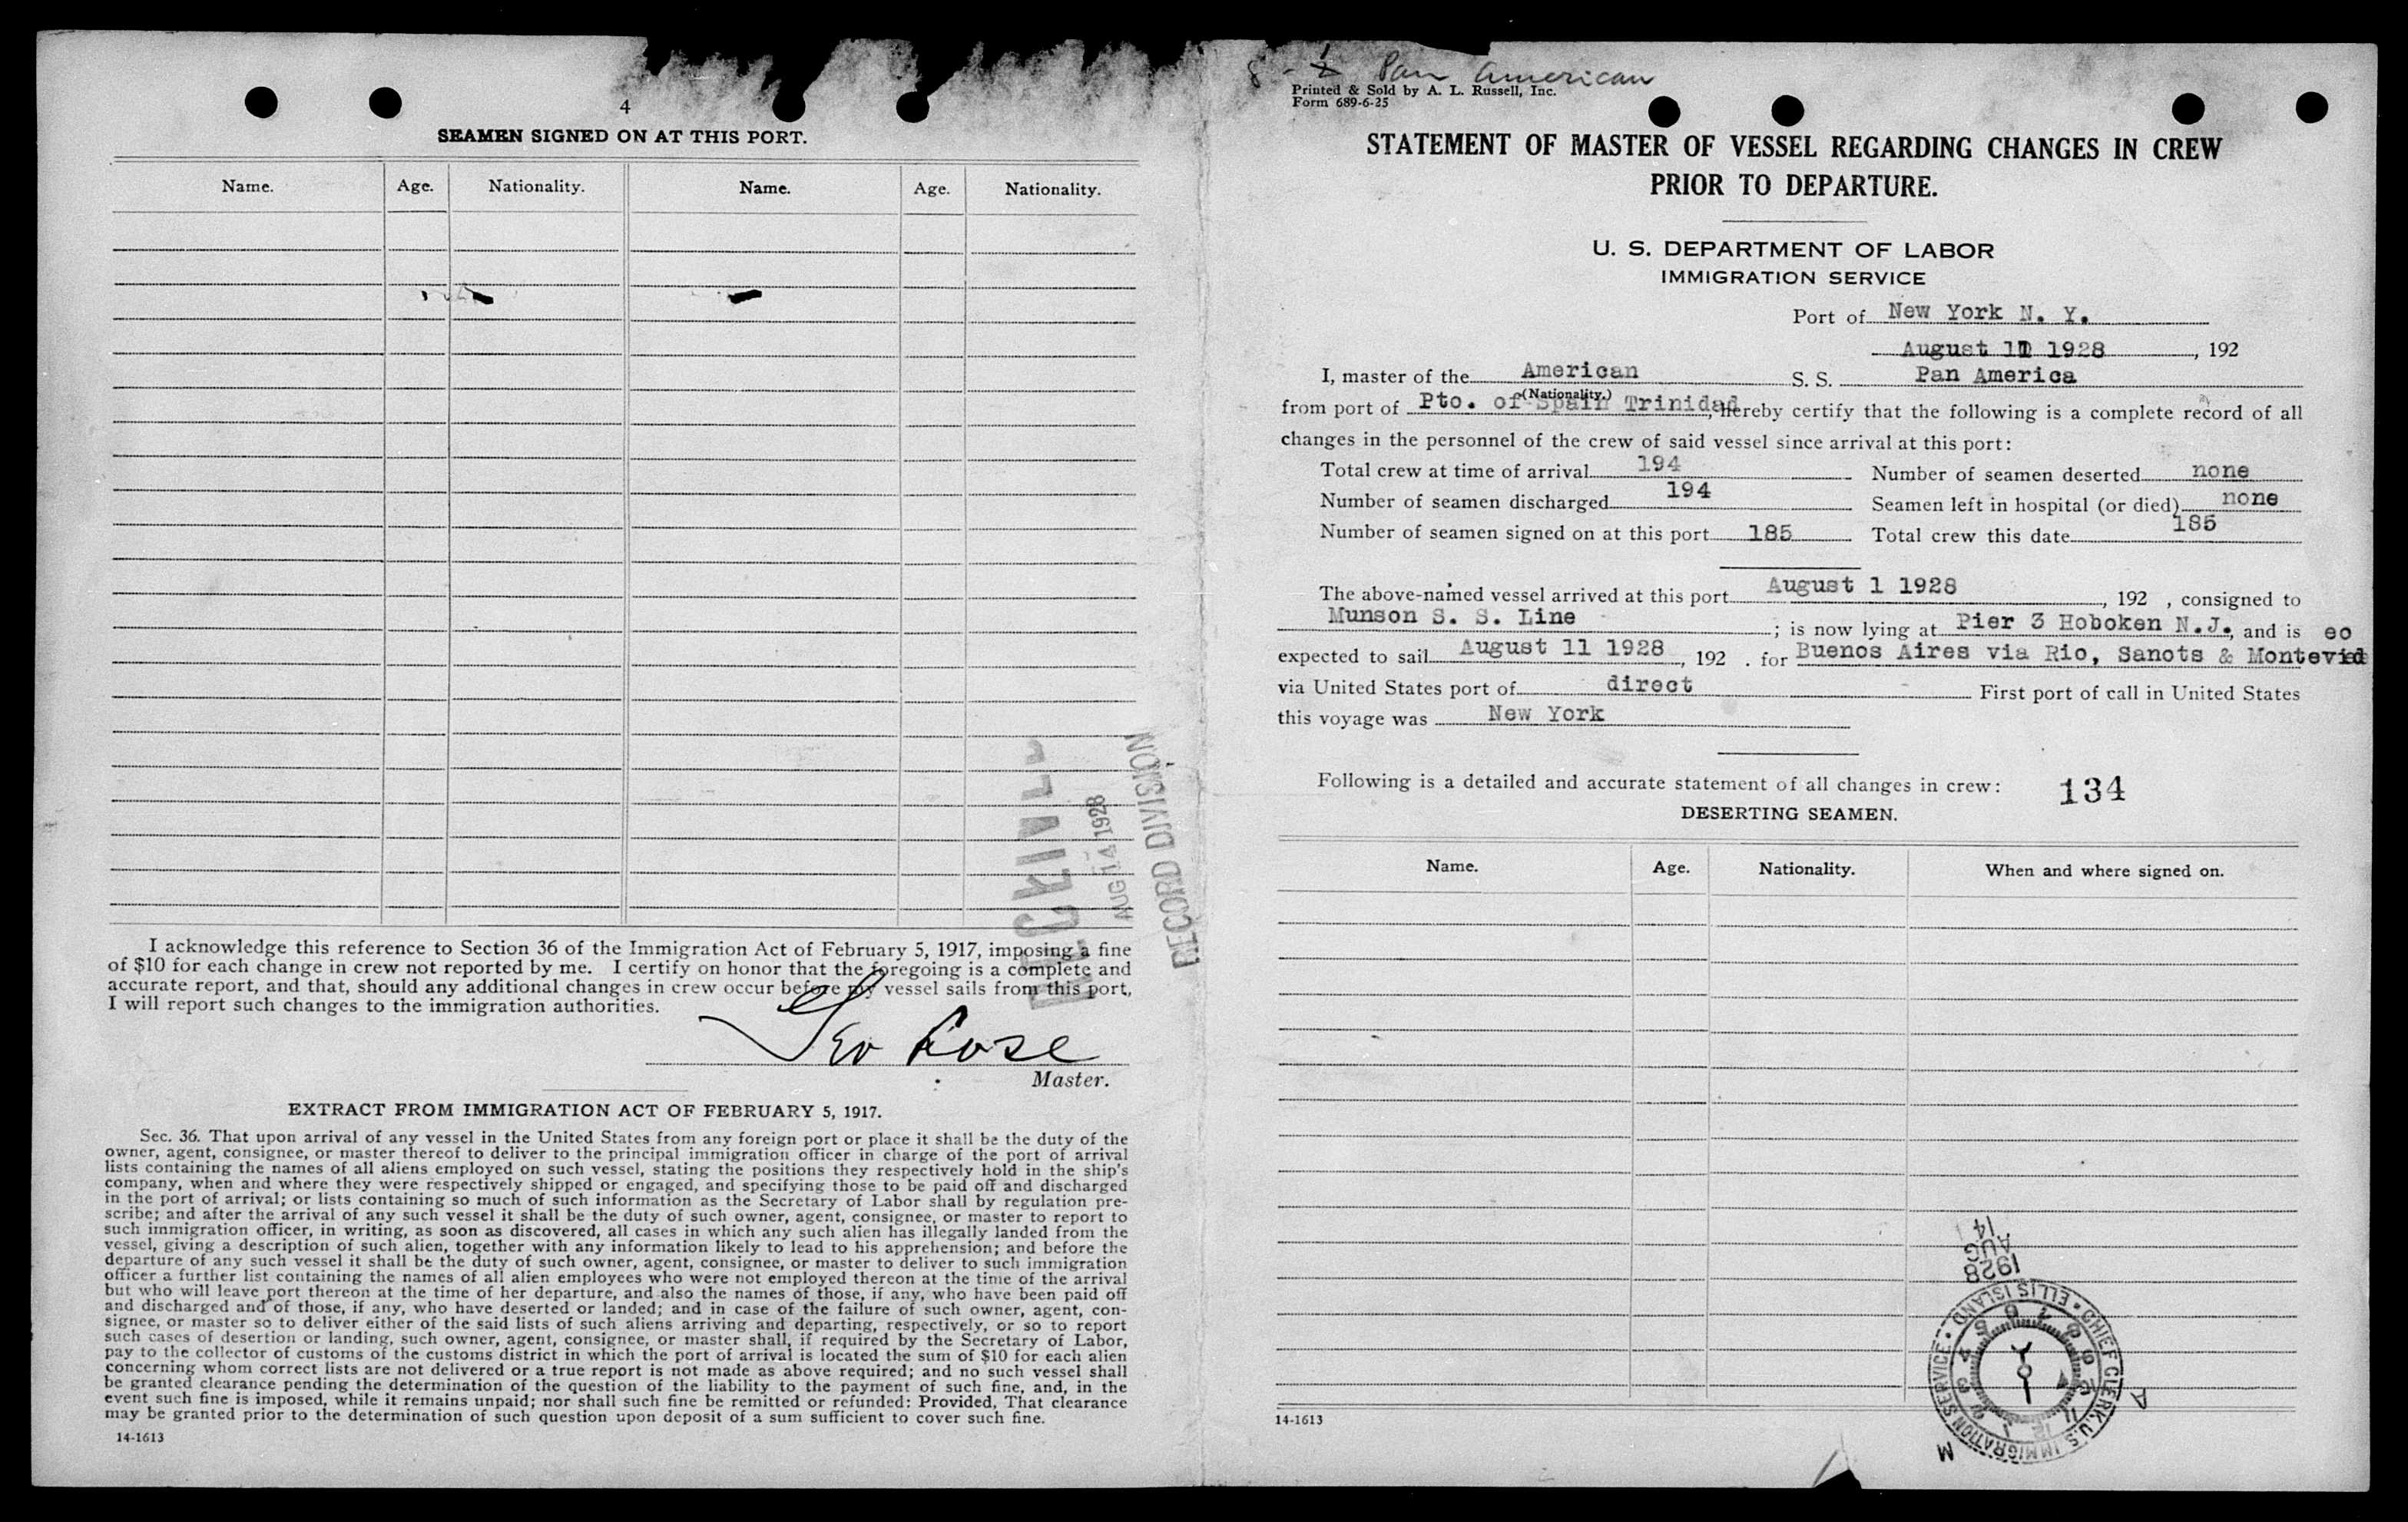 4
SEAMEN SIGNED ON AT THIS PORT.
Name. Age. Nationality. Name. Age. Nationality.
RECEIVED
AUG 14 1928
RECORD DIVISION
I acknowledge this reference to Section 36 of the Immigration Act of February 5, 1917, imposing a fine
of $10 for each change in crew not reported by me. I certify on honor that the foregoing is a complete and
accurate report, and that, should any additional changes in crew occur before my vessel sails from this port,
I will report such changes to the immigration authorities.
Geo Rose
Master.
EXTRACT FROM IMMIGRATION ACT OF FEBRUARY 5, 1917.
Sec. 36. That upon arrival of any vessel in the United States from any foreign port or place it shall be the duty of the
owner, agent, consignee, or master thereof to deliver to the principal immigration officer in charge of the port of arrival
lists containing the names of all aliens employed on such vessel, stating the positions they respectively hold in the ship's
company, when and where they were respectively shipped or engaged, and specifying those to be paid off and discharged
in the port of arrival; or lists containing so much of such information as the Secretary of Labor shall by regulation pre-
scribe; and after the arrival of any such vessel it shall be the duty of such owner, agent, consignee, or master to report to
such immigration officer, in writing, as soon as discovered, all cases in which any such alien has illegally landed from the
vessel, giving a description of such alien, together with any information likely to lead to his apprehension; and before the
departure of any such vessel it shall be the duty of such owner, agent, consignee, or master to deliver to such immigration
officer a further list containing the names of all alien employees who were not employed thereon at the time of the arrival
but who will leave port thereon at the time of her departure, and also the names of those, if any, who have been paid off
and discharged and of those, if any, who have deserted or landed; and in case of the failure of such owner, agent, con-
signee, or master so to deliver either of the said lists of such aliens arriving and departing, respectively, or so to report
such cases of desertion or landing, such owner, agent, consignee, or master shall, if required by the Secretary of Labor,
pay to the collector of customs of the customs district in which the port of arrival is located the sum of $10 for each alien
concerning whom correct lists are not delivered or a true report is not made as above required; and no such vessel shall
be granted clearance pending the determination of the question of the liability to the payment of such fine, and, in the
event such fine is imposed, while it remains unpaid; nor shall such fine be remitted or refunded: Provided, That clearance
may be granted prior to the determination of such question upon deposit of a sum sufficient to cover such fine.
14-1613
Pan American
Printed & Sold by A. L. Russell, Inc.
Form 689-6-25
STATEMENT OF MASTER OF VESSEL REGARDING CHANGES IN CREW
PRIOR TO DEPARTURE.
U. S. DEPARTMENT OF LABOR
IMMIGRATION SERVICE
Port of New York N. Y.
August 11 1928, 192
I, master of the American S. S. Pan America
(Nationality.)
from port of Pto. of Spain Trinidad, hereby certify that the following is a complete record of all
changes in the personnel of the crew of said vessel since arrival at this port:
Total crew at time of arrival 194 Number of seamen deserted none
Number of seamen discharged 194 Seamen left in hospital (or died) none
Number of seamen signed on at this port 185 Total crew this date 185
The above-named vessel arrived at this port August 1 1928, 192 , consigned to
Munson S. S. Line ; is now lying at Pier 3 Hoboken N.J., and is eo
expected to sail August 11 1928, 192 . for Buenos Aires via Rio, Sanots & Montevid
via United States port of direct First port of call in United States
this voyage was New York
Following is a detailed and accurate statement of all changes in crew: 134
DESERTING SEAMEN.
Name. Age. Nationality. When and where signed on.
14
AUG
1928
CHIEF CLERK. U.S. IMMIGRATION SERVICE • ELLIS ISLAND •
1 2 3 4 5 6 7 8 9 10 11 12
A
M
14-1613